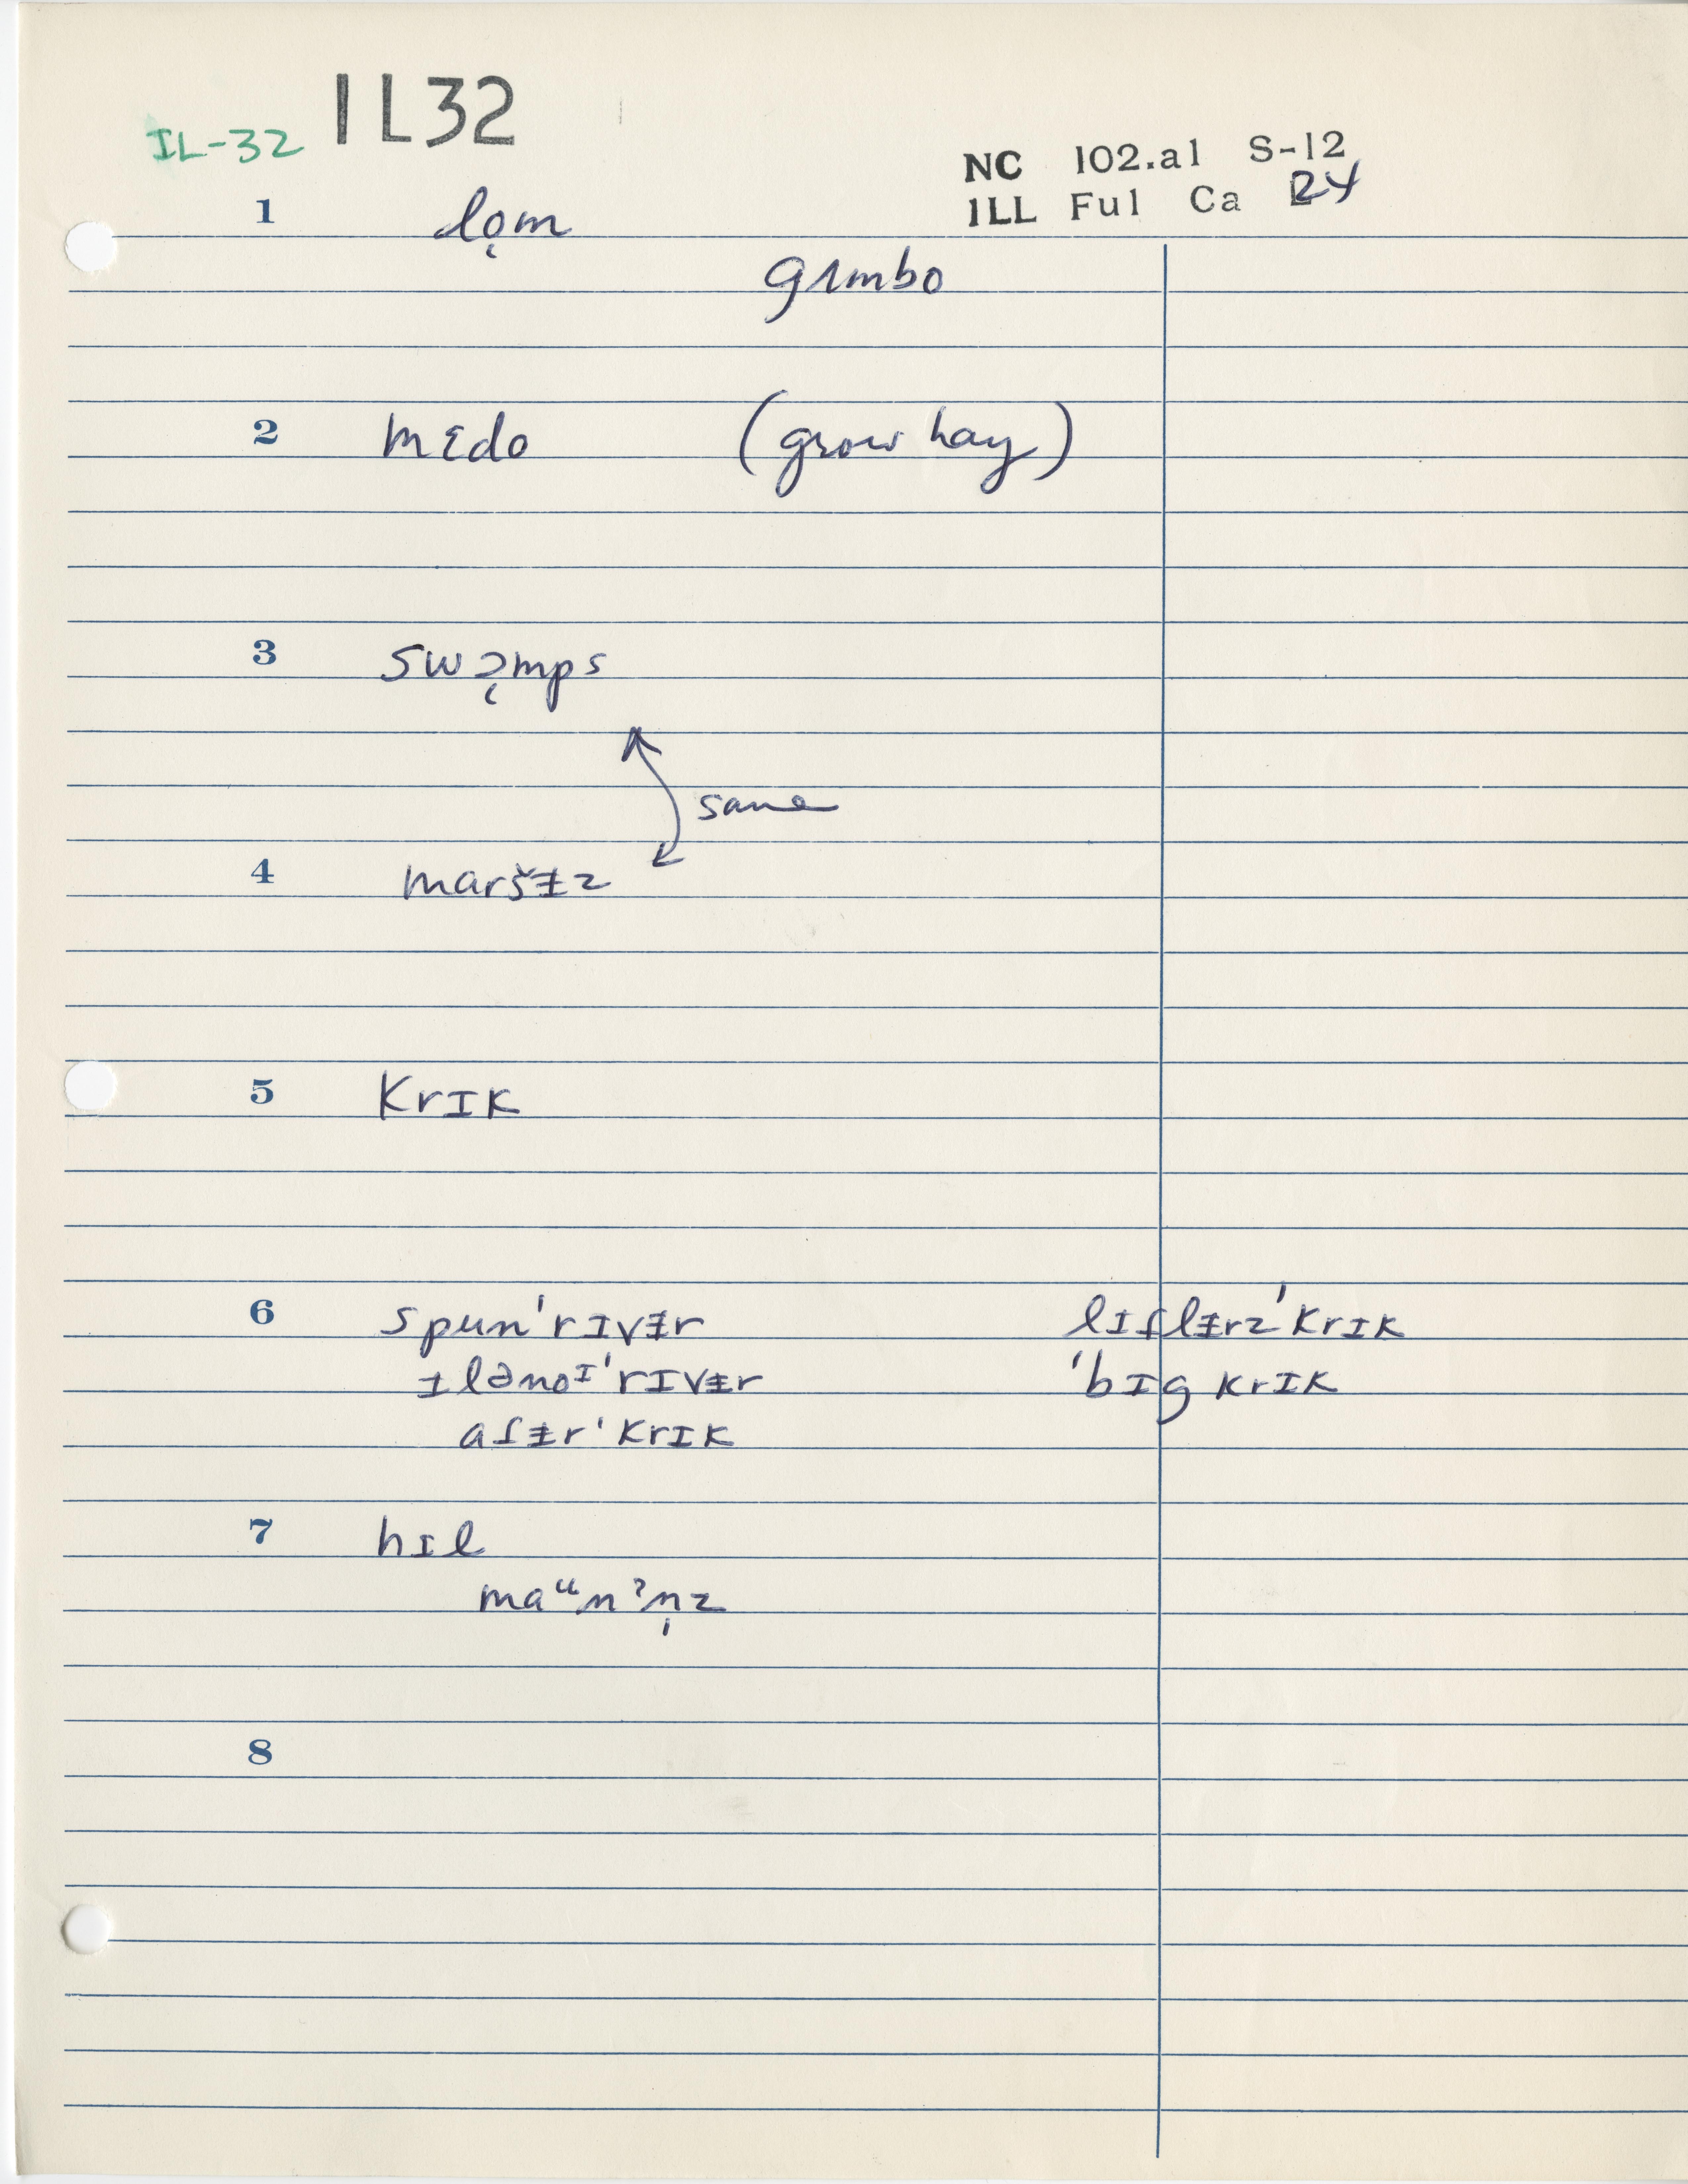 IL-32 IL32
NC 102.a1 S-12
ILL Ful Ca R4
1 lo̜m
gʌmbo
2 mɛdo (grow hay)
3 swɔ̜mps
same
4 maršɨz
5 krɪk
6 spun'rɪvɨr lɪflɨrz'krɪk
ɪlənoᴵ'rɪvɨr 'bɪg krɪk
afɨr'krɪk
7 hɪl
maᵘnˀn̩z
8